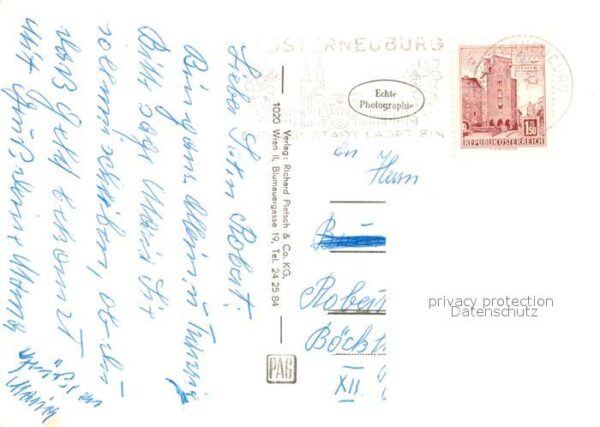 Lieber Sohn Robert!
Bin ganz allein in
Bitte sage Maria Sie
soll mir schreiben, ob du
das Geld bekommt
mit Grüße deine Mama
Grüße an
Maria
Verlag: Richard Pietsch & Co. KG,
1020 Wien II, Blumauergasse 19, Tel. 24 25 84
PAG
KLOSTERNEUBURG
STADT LADET EIN
Echte
Photographie
1.50
REPUBLIK ÖSTERREICH
An
Herrn
Robert
Böck
XII.
privacy protection
Datenschutz